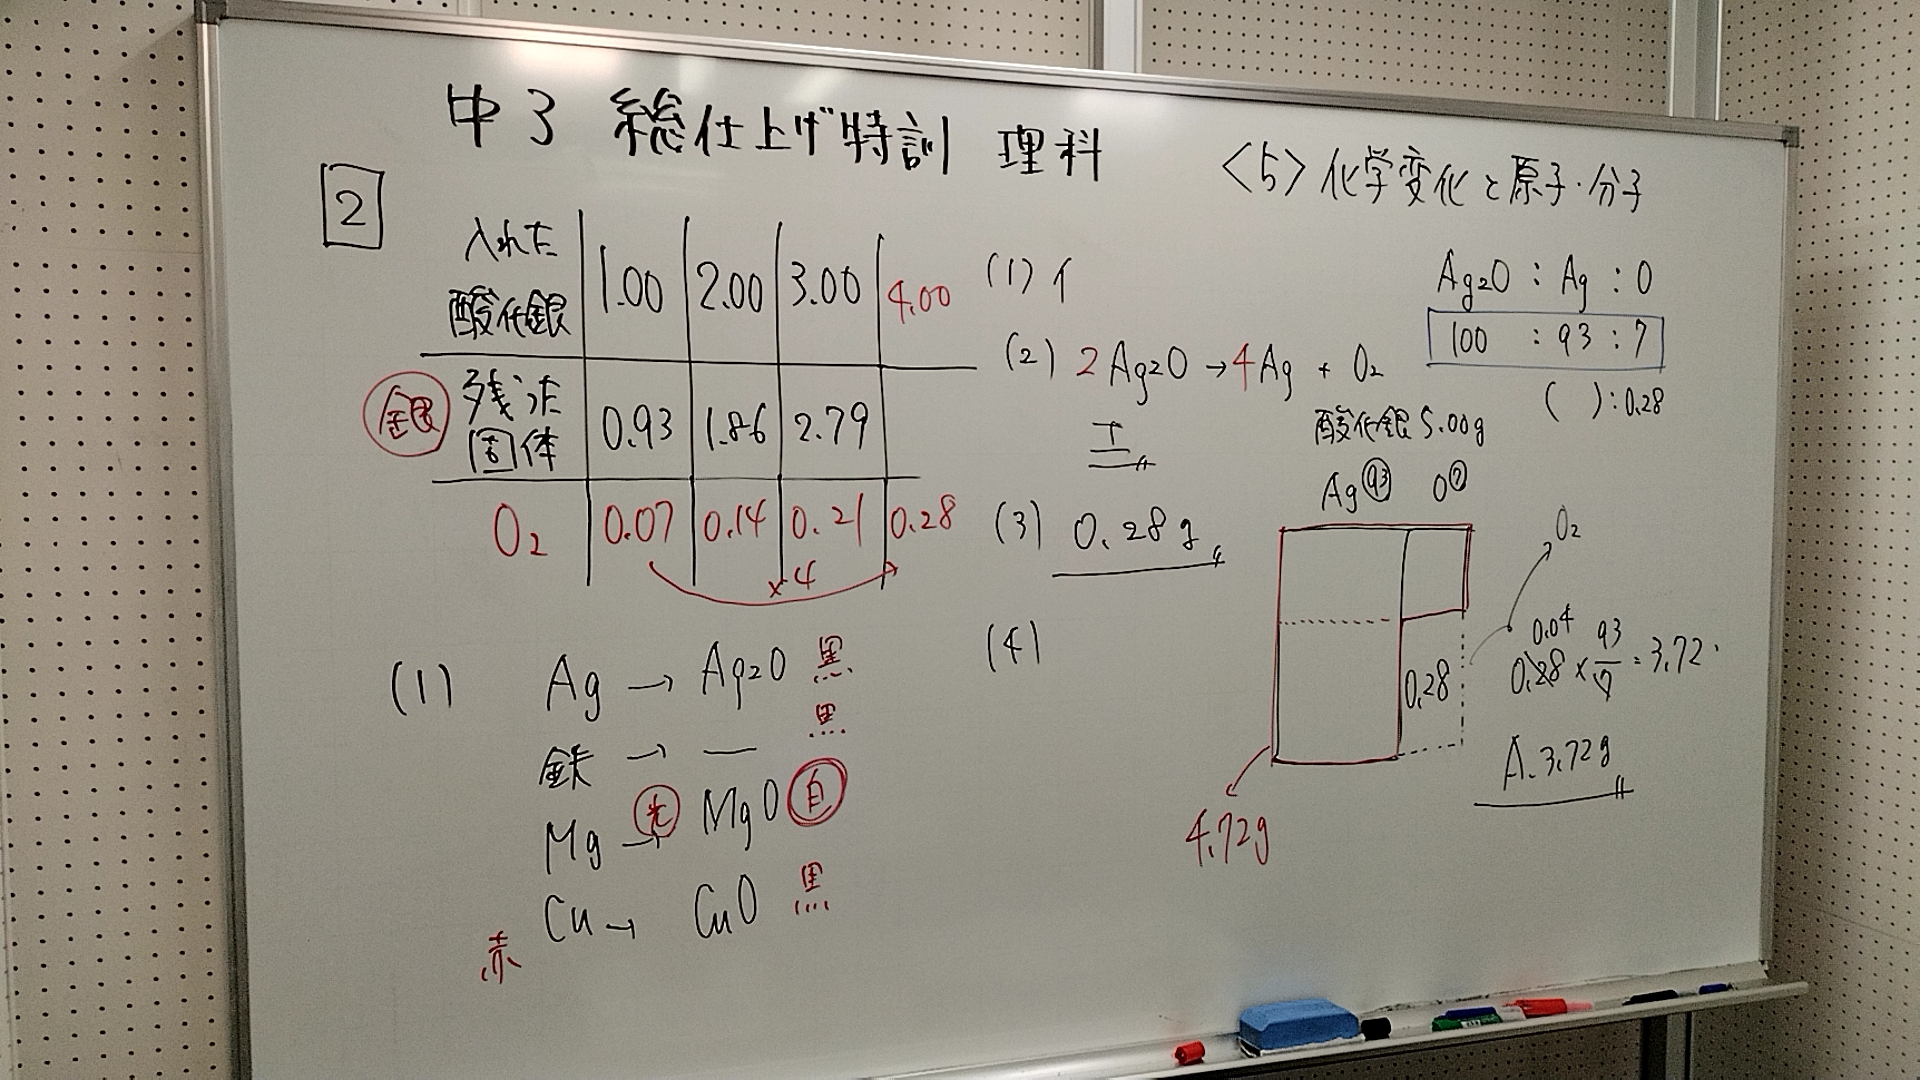 中3 総仕上げ特訓 理科
<5> 化学変化と原子・分子
2
入れた酸化銀 1.00 2.00 3.00 4.00
銀 残った固体 0.93 1.86 2.79
O₂ 0.07 0.14 0.21 0.28
×4
(1) Ag → Ag₂O 黒
鉄 → — 黒
Mg → 光 MgO 白
赤 Cu → CuO 黒
(1) イ
(2) 2Ag₂O → 4Ag + O₂
エ
(3) 0.28g
(4)
Ag₂O : Ag : O
100 : 93 : 7
( ) : 0.28
酸化銀 5.00g
Ag 93 O 7
O₂
0.28
0.04
0.28 × 93/7 = 3.72
A. 3.72g
4.72g